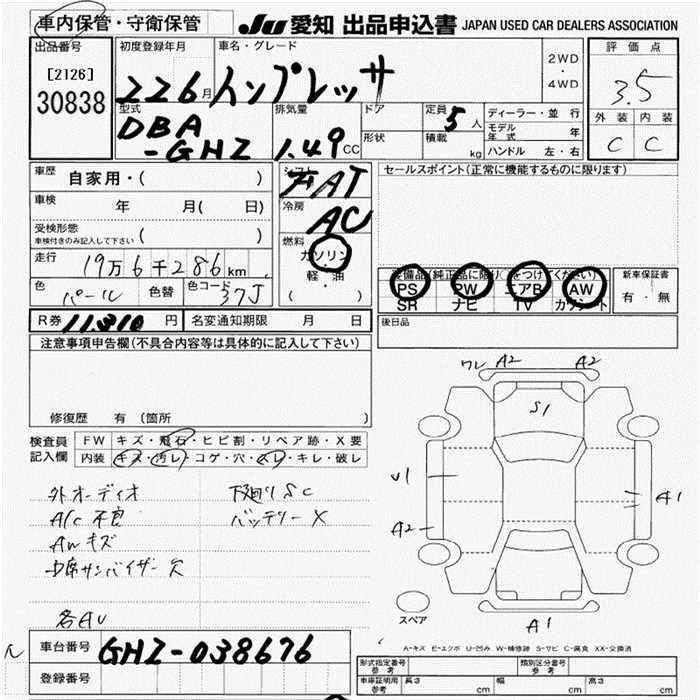 車内保管・守衛保管 JU 愛知 出品申込書 JAPAN USED CAR DEALERS ASSOCIATION
出品番号 初度登録年月 車名・グレード 評価点
[2126] 226月 インプレッサ 2WD・4WD 3.5
30838
型式 排気量 ドア 定員 5人 ディーラー・並行 外装 内装
DBA-GHZ 1.49CC 形状 積載 kg モデル年式 年 C C
ハンドル 左・右
車歴 自家用・( ) シフト FAT セールスポイント(正常に機能するものに限ります)
車検 年 月( 日) 冷房 AC
受検形態 ( )
車検付きのみ記入して下さい
燃料 ガソリン・軽・油 ( )
走行 19万6千286km
装備品(純正品に限り○をつけてください) 新車保証書
PS PW エアB AW 有・無
SR ナビ TV カワシート
色 パール 色替 色コード 37J
R券 11,310円 名変通知期限 月 日 後日品
注意事項申告欄(不具合内容等は具体的に記入して下さい)
修復歴 有 (箇所 )
検査員記入欄 FW キズ・飛石・ヒビ割・リペア跡・X要
内装 キズ・汚レ・コゲ・穴・スレ・キレ・破レ
外オーディオ 下廻りSC
A/C不良 バッテリーX
AWキズ
中席サンバイザー欠
各AU
ワレ A2 A2
S1
U1
A1
A2
スペア A1
A-キズ E-エクボ U-凹み W-補修跡 S-サビ C-腐食 XX-交換済
車台番号 GHZ-038676
登録番号
形式指定番号 参考 類別区分番号 参考
車庫証明用 参考 長さ cm 幅 cm 高さ cm